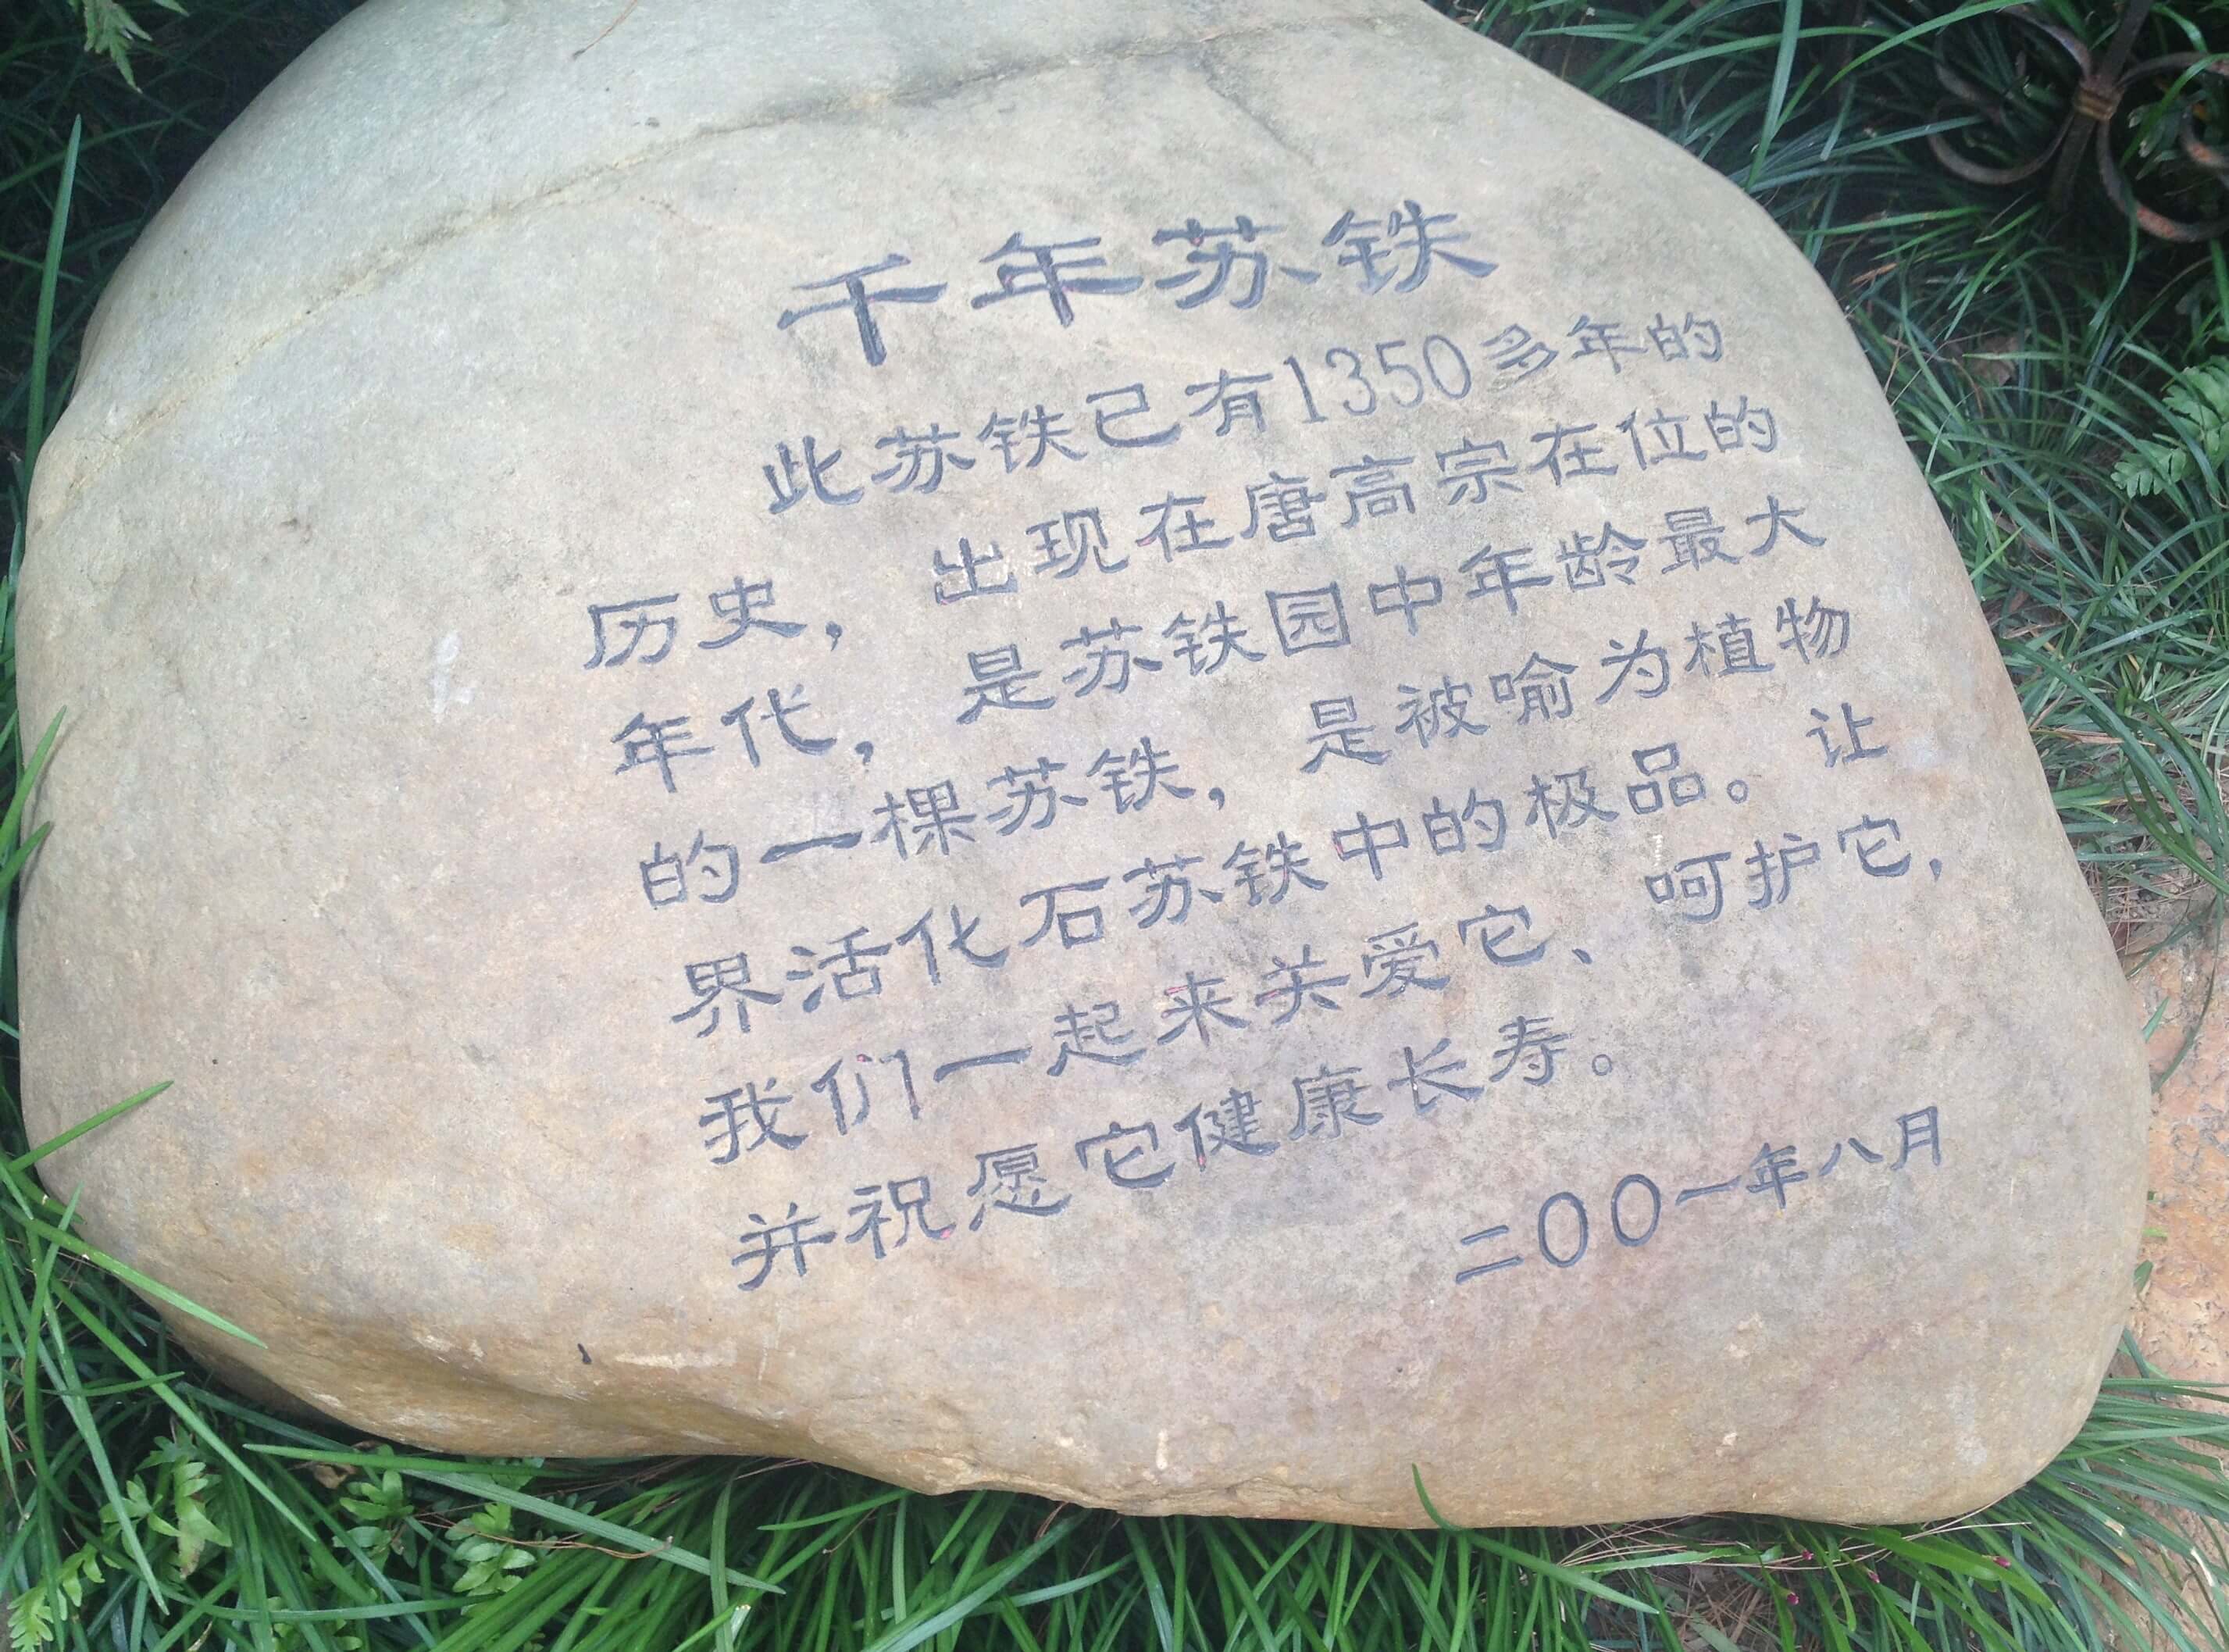 千年苏铁
此苏铁已有1350多年的
历史，出现在唐高宗在位的
年代，是苏铁园中年龄最大
的一棵苏铁，是被喻为植物
界活化石苏铁中的极品。让
我们一起来关爱它、呵护它，
并祝愿它健康长寿。
二〇〇一年八月